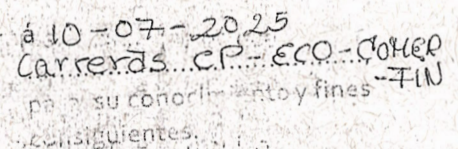 á 10-07-2025
Carreras CP-ECO-COMER
-FIN
para su conocimiento y fines
consiguientes.